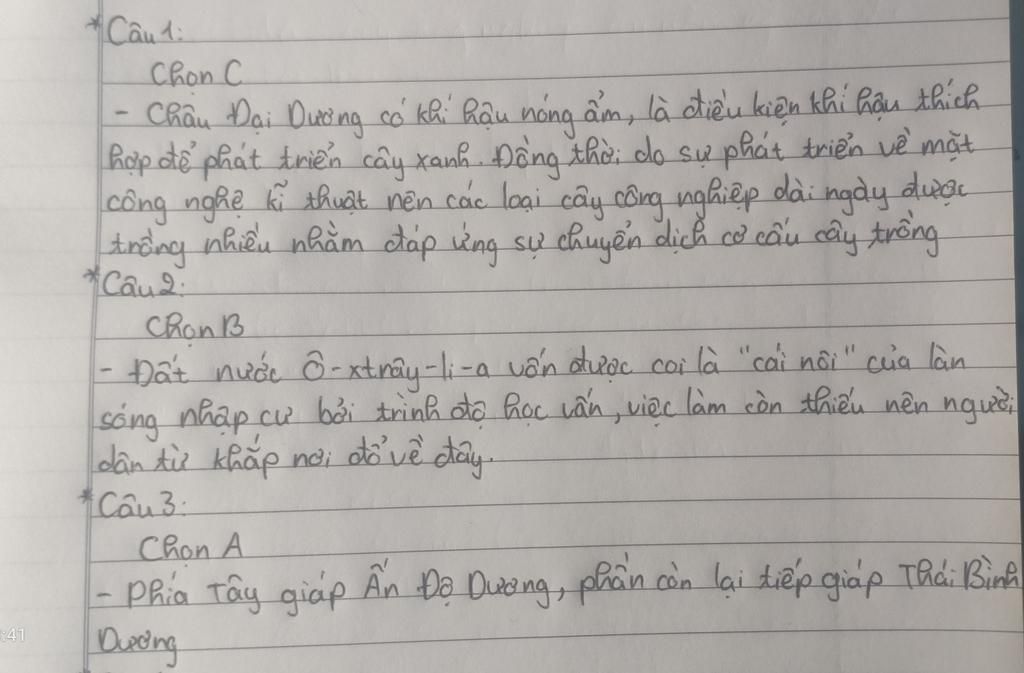 * Câu 1:
Chọn C
- Châu Đại Dương có khí hậu nóng ẩm, là điều kiện khí hậu thích
hợp để phát triển cây xanh. Đồng thời do sự phát triển về mặt
công nghệ kĩ thuật nên các loại cây công nghiệp dài ngày được
trồng nhiều nhằm đáp ứng sự chuyển dịch cơ cấu cây trồng
* Câu 2:
Chọn B
- Đất nước Ô-xtrây-li-a vốn được coi là "cái nôi" của làn
sóng nhập cư bởi trình độ học vấn, việc làm còn thiếu nên người
dân từ khắp nơi đổ về đây.
* Câu 3:
Chọn A
- Phía Tây giáp Ấn Độ Dương, phần còn lại tiếp giáp Thái Bình
Dương
:41